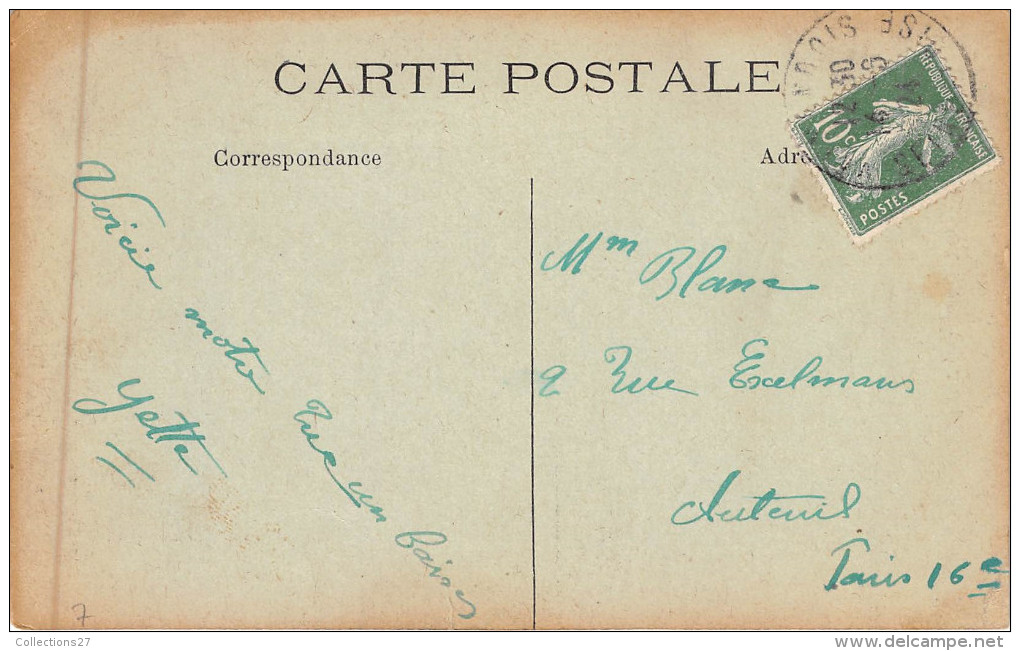 CARTE POSTALE
Correspondance
Adre
RÉPUBLIQUE FRANÇAISE
10c
POSTES
Voici
notre
rue un baiser
Yette
Mm Blanc
9 Rue Exelmans
Auteuil
Paris 16e
7
Collections27
delcampe.net